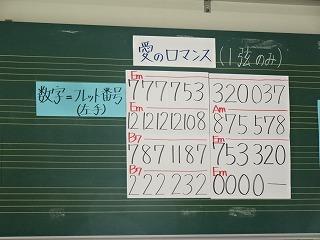 愛のロマンス (1弦のみ)
数字=フレット番号
(左手)
Em
777753
320037
Em
12121212108
Am
875578
B7
7871187
Em
753320
B7
222232
Em
0000—